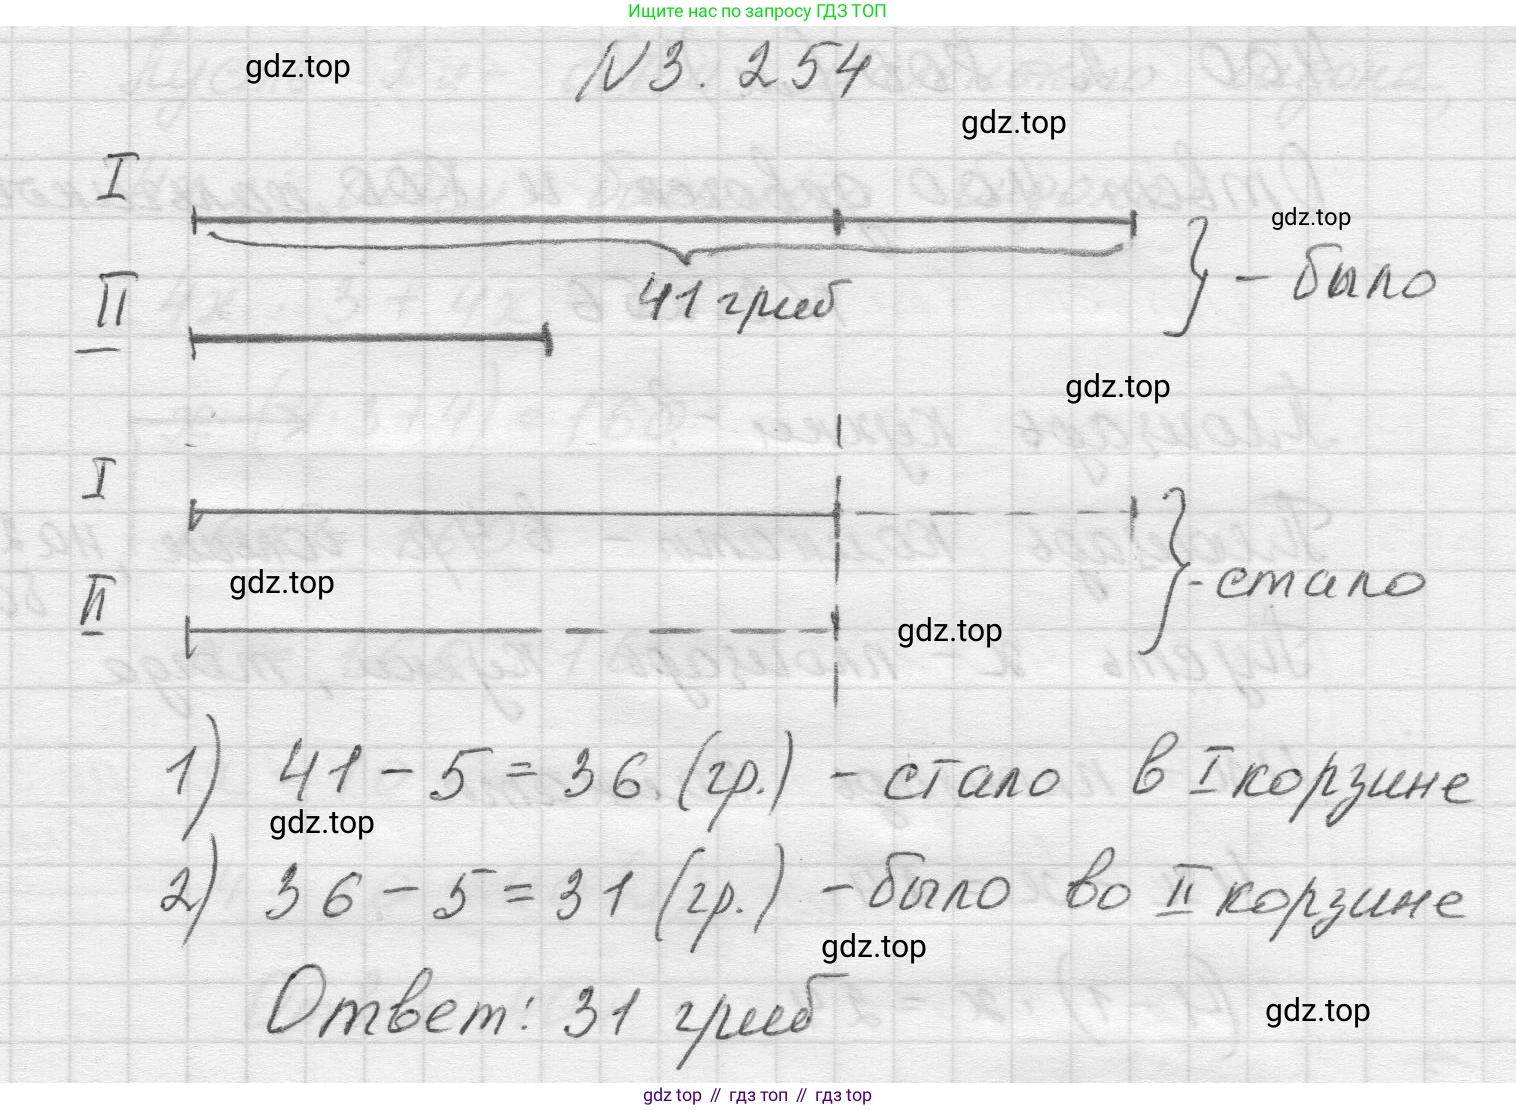 Ищите нас по запросу ГДЗ ТОП
gdz.top
N 3. 254
gdz.top
I
gdz.top
41 гриб
- было
II
gdz.top
I
gdz.top
- стало
II
gdz.top
1) 41 - 5 = 36 (гр.) - стало в I корзине
gdz.top
2) 36 - 5 = 31 (гр.) - было во II корзине
gdz.top
Ответ: 31 гриб
gdz.top
gdz top // гдз топ // гдз top